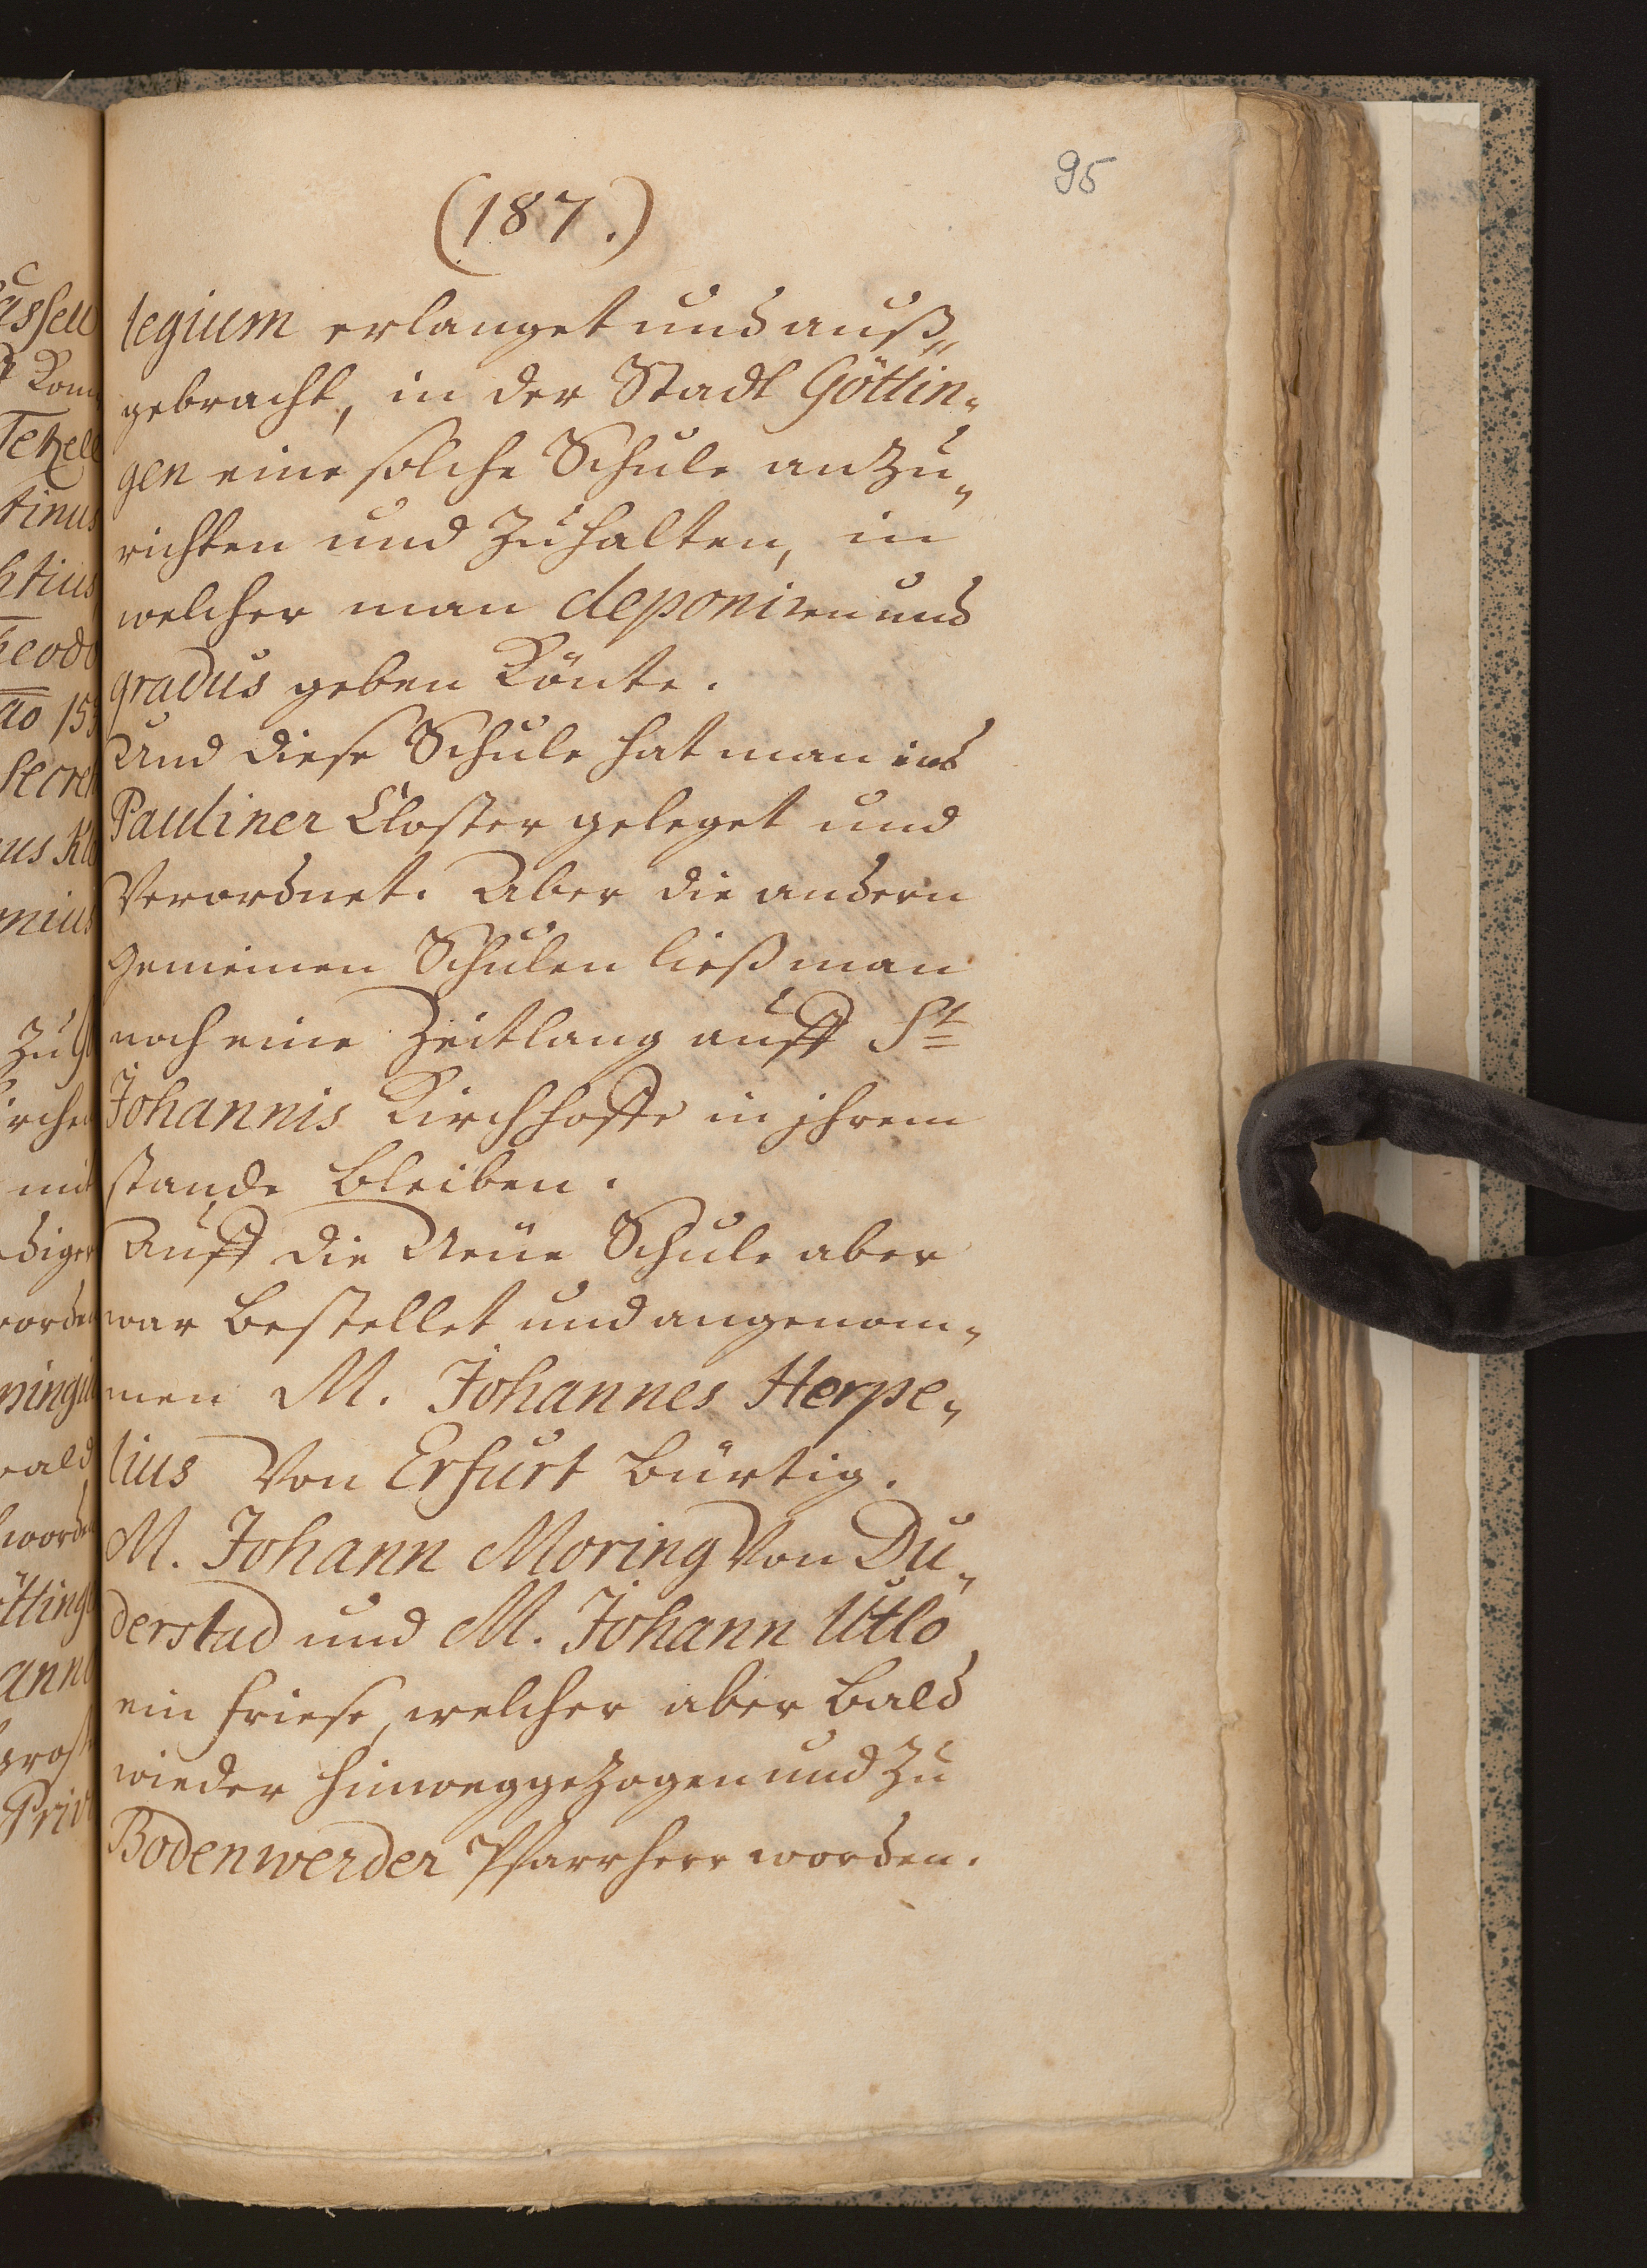 95
(187.)
legium erlanget und auß„
gebracht, in der Stadt Göttin„
gen eine solche Schule anzu„
richten und zu halten, in
welcher man deponiren und
gradus geben Könte.
Und diese Schule hat man ins
Pauliner Closter geleget und
Verordnet. Aber die andern
gemeinen Schulen ließ man
noch eine Zeitlang auff St
Johannis Kirchhoffe in jhrem
stande bleiben.
Auff die Neüe Schule aber
war bestellet und angenom„
men M. Johannes Herpe„
lius Von Erfurt bürtig.
M. Johann Moring Von Du„
derstad und M. Johann Utlo
ein friese, welcher aber bald
wieder hinweggezogen und zu
Bodenwerder Pfarrherr worden.